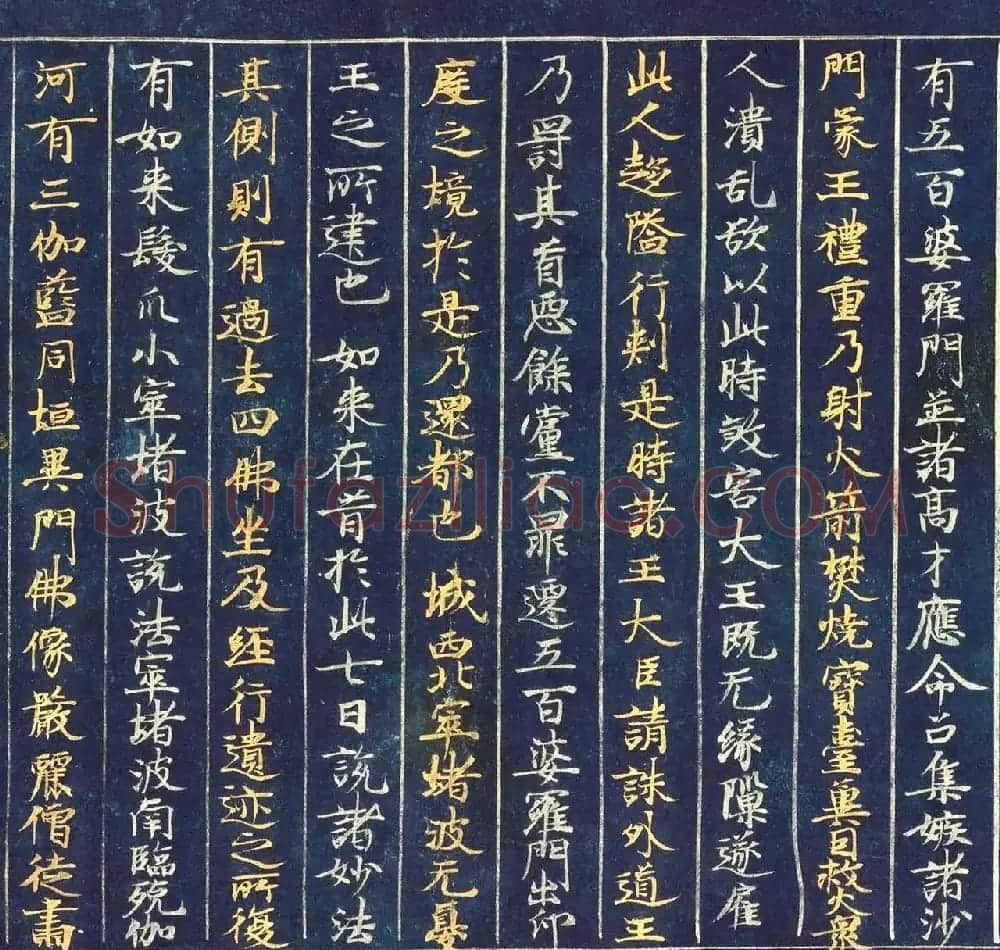 有五百婆羅門並諸高才應命召集嫉諸沙
門蒙王禮重乃射火箭樊燒寶臺冀因救火衆
人潰乱欲以此時敘害大王既无緣隟遂雇
此人趍隘行刾是時諸王大臣請誅外道王
乃罸其首惡餘黨不罪遷五百婆羅門出印
度之境於是乃還都也 城西北窣堵波无憂
王之所建也 如来在昔於此七日說諸妙法
其側則有過去四佛坐及經行遺迹之所復
有如来髮爪小窣堵波說法窣堵波南臨殑伽
河有三伽藍同垣異門佛像嚴麗僧徒肅
Shufaziliao.COM